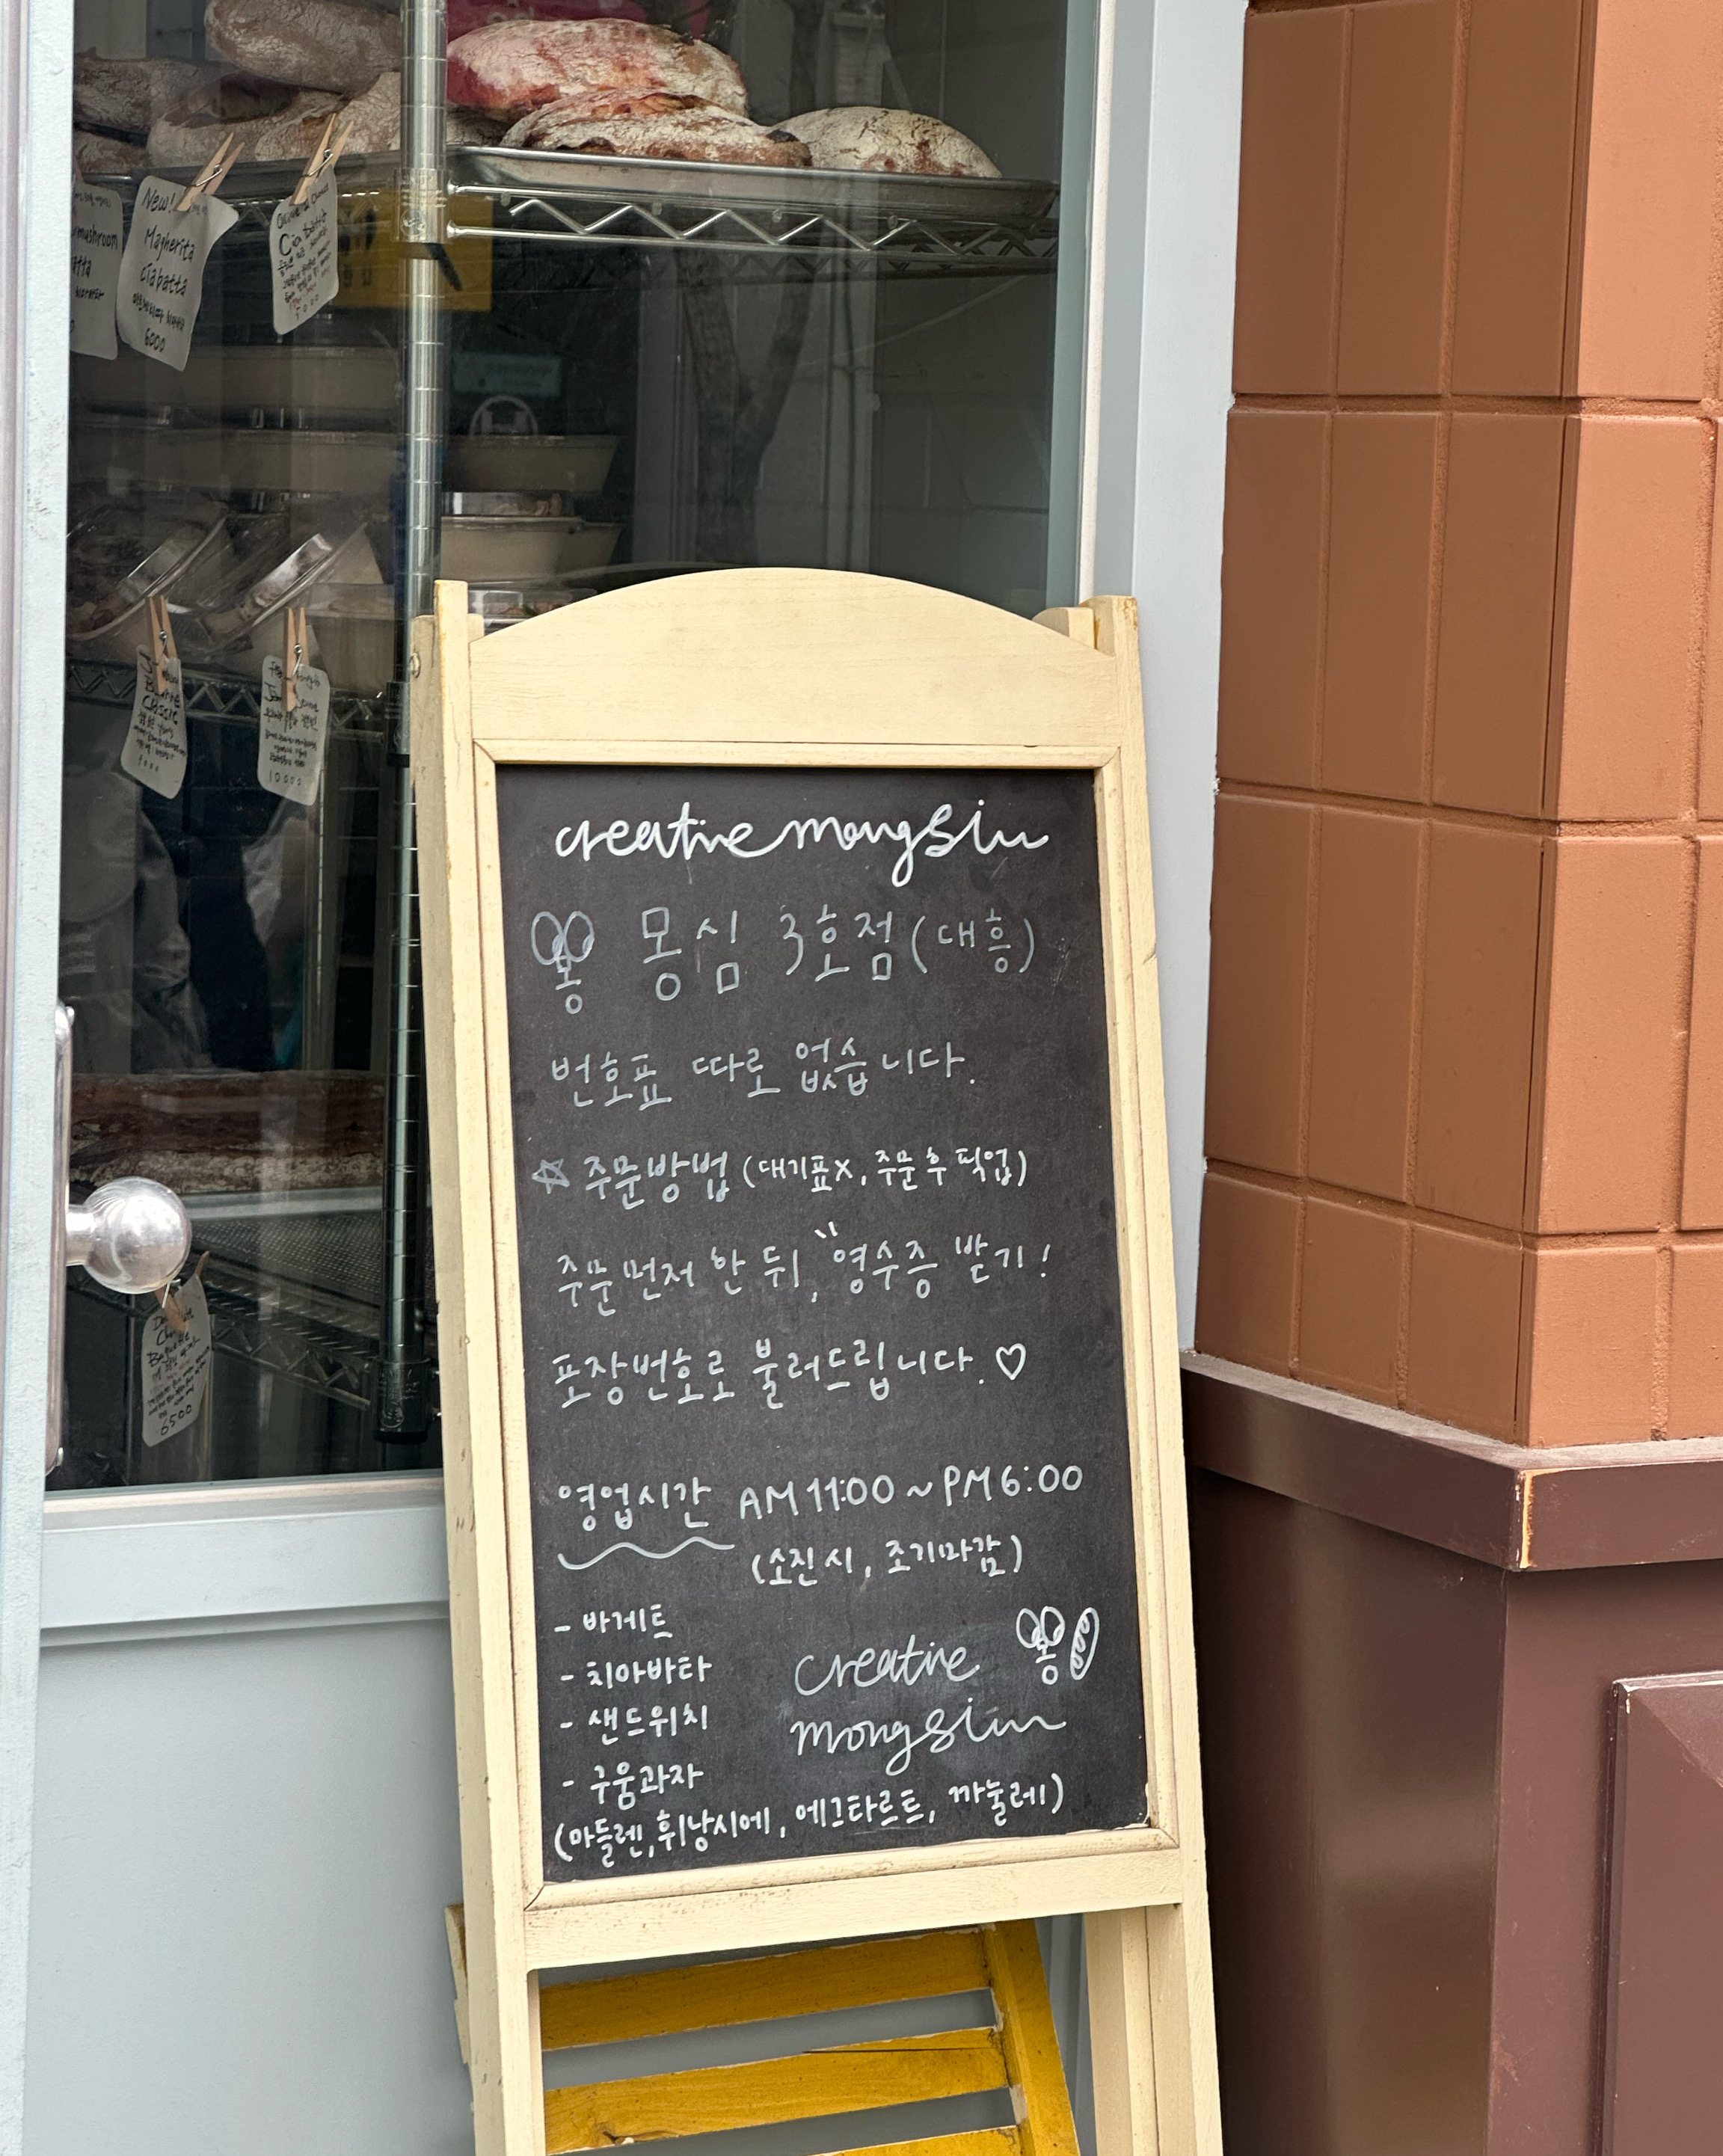 mushroom
New!
Magherita
ciabatta
6000
Ciabatta
5000
Classic
10000
Baguette
6500
creative mongsim
몽
몽심 3호점(대흥)
번호표 따로 없습니다.
☆ 주문방법 (대기표X, 주문 후 픽업)
주문 먼저 한 뒤, "영수증 받기!
포장번호로 불러드립니다. ♡
영업시간 AM 11:00 ~ PM 6:00
(소진 시, 조기마감)
- 바게트
- 치아바타
- 샌드위치
- 구움과자
(마들렌, 휘낭시에, 에그타르트, 까눌레)
creative 몽
mongsim